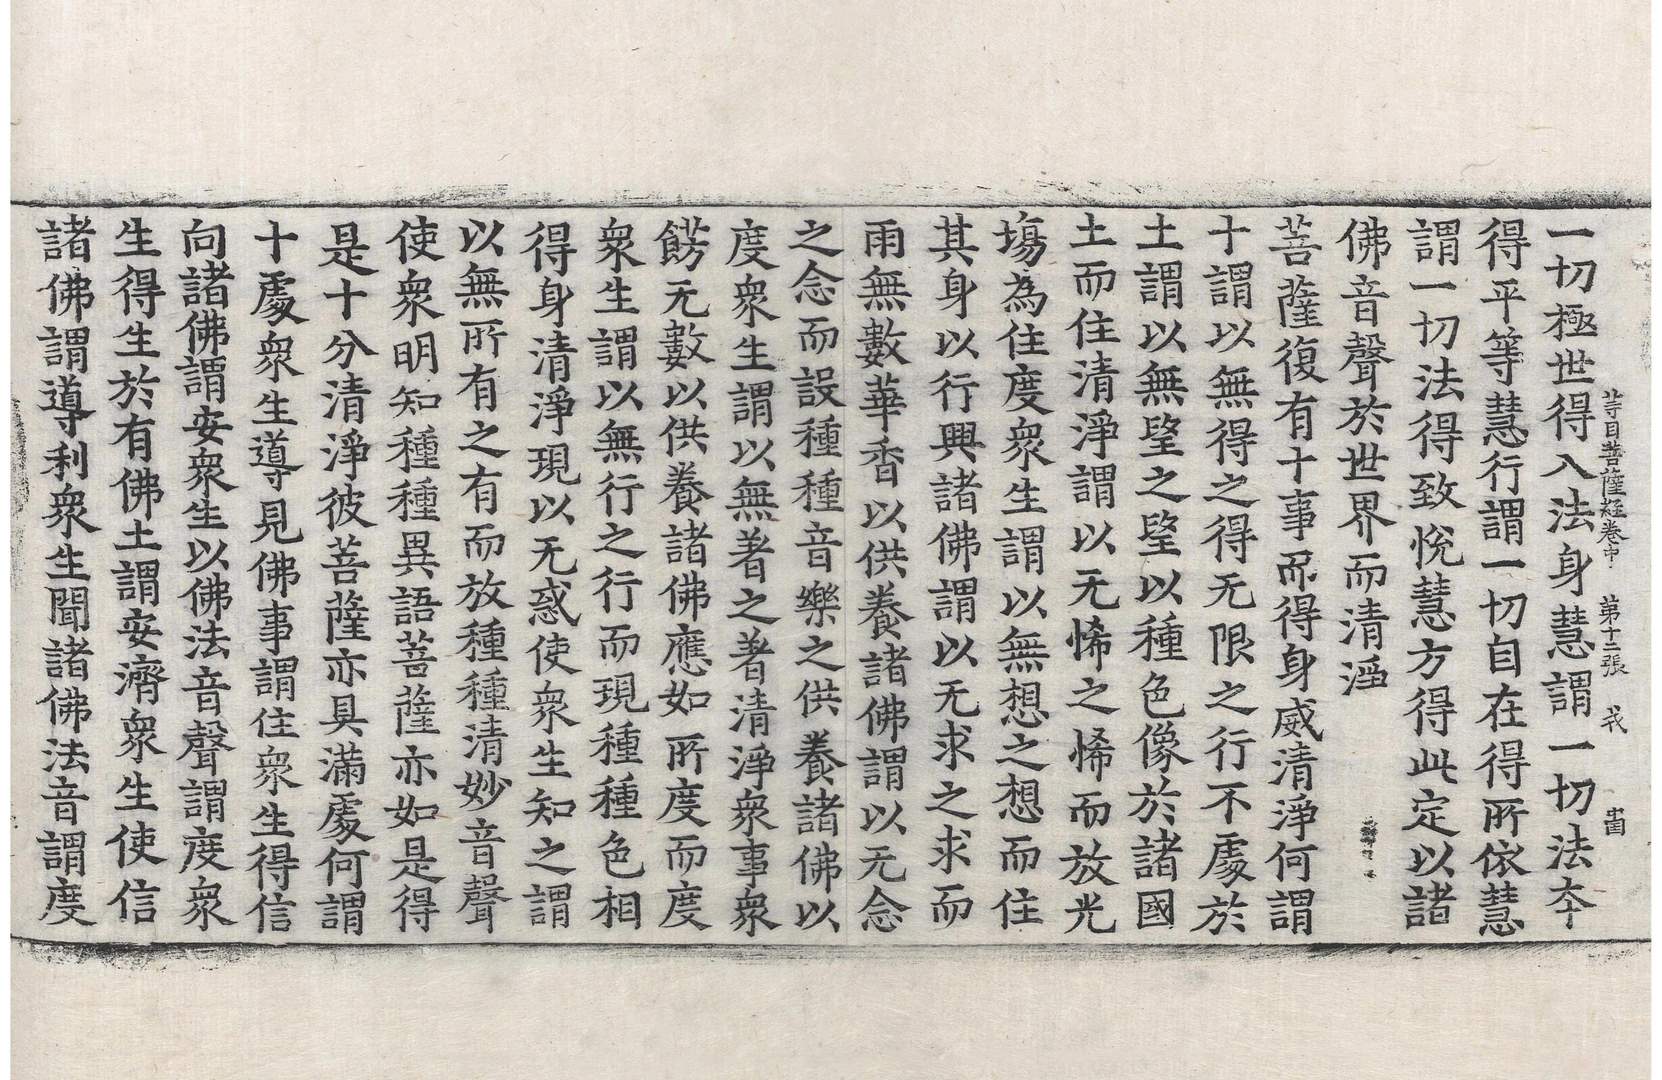 等目菩薩經卷中 第十二張 我
一切極世得入法身慧謂一切法夲
得平等慧行謂一切自在得所依慧
謂一切法得致悅慧方得此定以諸
佛音聲於世界而清淨
菩薩復有十事而得身威清淨何謂
十謂以無得之得无限之行不處於
土謂以無朢之朢以種色像於諸國
土而住清淨謂以无悕之悕而放光
塲為住度衆生謂以無想之想而住
其身以行興諸佛謂以无求之求而
雨無數華香以供養諸佛謂以无念
之念而設種種音樂之供養諸佛以
度衆生謂以無著之著清淨衆事衆
餝无數以供養諸佛應如所度而度
衆生謂以無行之行而現種種色相
得身清淨現以无惑使衆生知之謂
以無所有之有而放種種清妙音聲
使衆明知種種異語菩薩亦如是得
是十分清淨彼菩薩亦具滿處何謂
十處衆生導見佛事謂住衆生得信
向諸佛謂安衆生以佛法音聲謂度衆
生得生於有佛土謂安濟衆生使信
諸佛謂導利衆生聞諸佛法音謂度